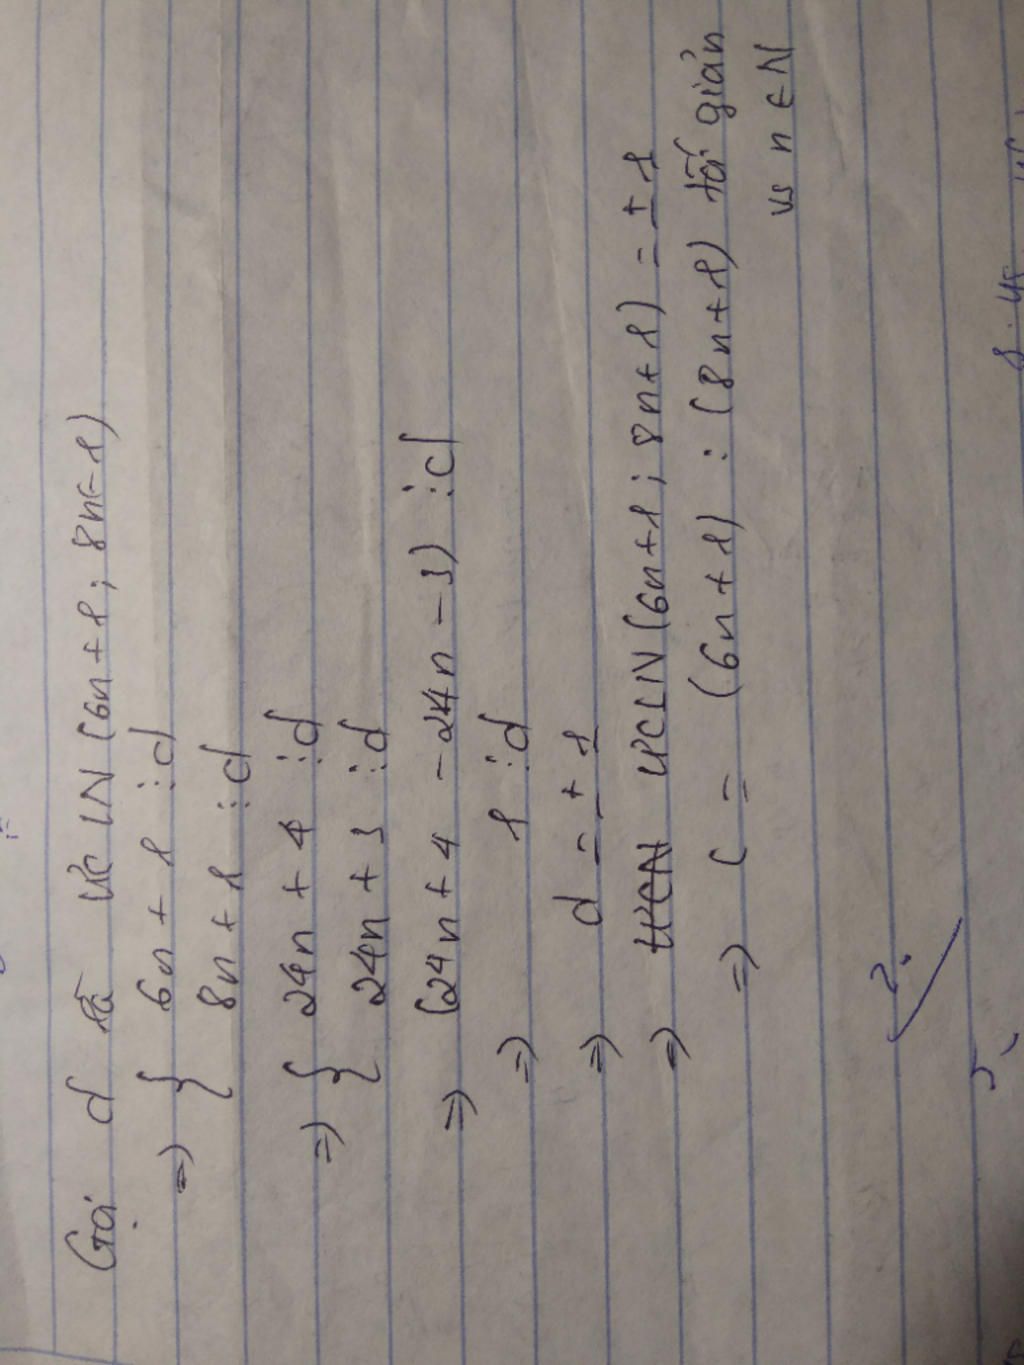 Gọi d là ƯCLN (6n+1; 8n+1)
=> { 6n + 1 ⋮ d
8n + 1 ⋮ d
=> { 24n + 4 ⋮ d
24n + 3 ⋮ d
=> (24n + 4 - 24n - 3) ⋮ d
=> 1 ⋮ d
=> d = ± 1
=> ƯCLN (6n+1; 8n+1) = ± 1
=> C = (6n+1) : (8n+1) tối giản
vs n ∈ N
2.